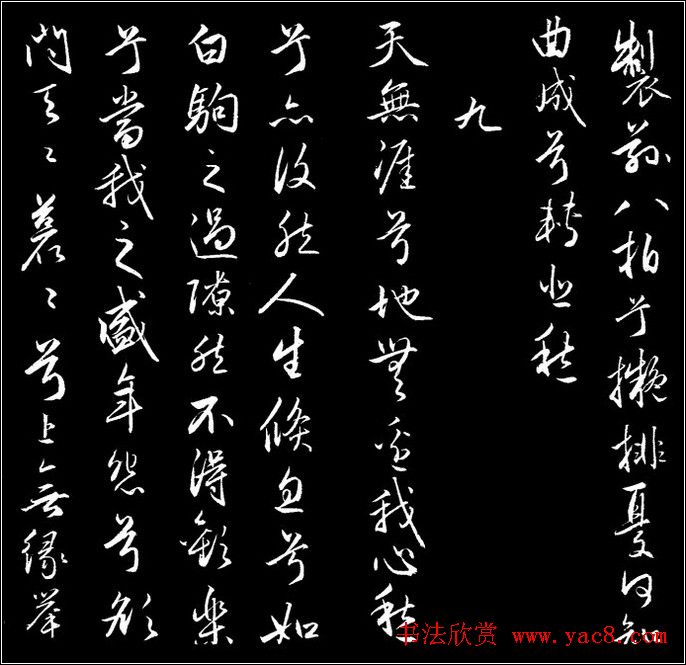 製茲八拍兮擬排憂何知
曲成兮轉悲愁
九
天無涯兮地無邊我心愁
兮亦復然人生倏忽兮如
白駒之過隙然不得歡樂
兮當我之盛年怨兮欲
問天〻蒼〻兮上無緣舉
书法欣赏 www.yac8.com